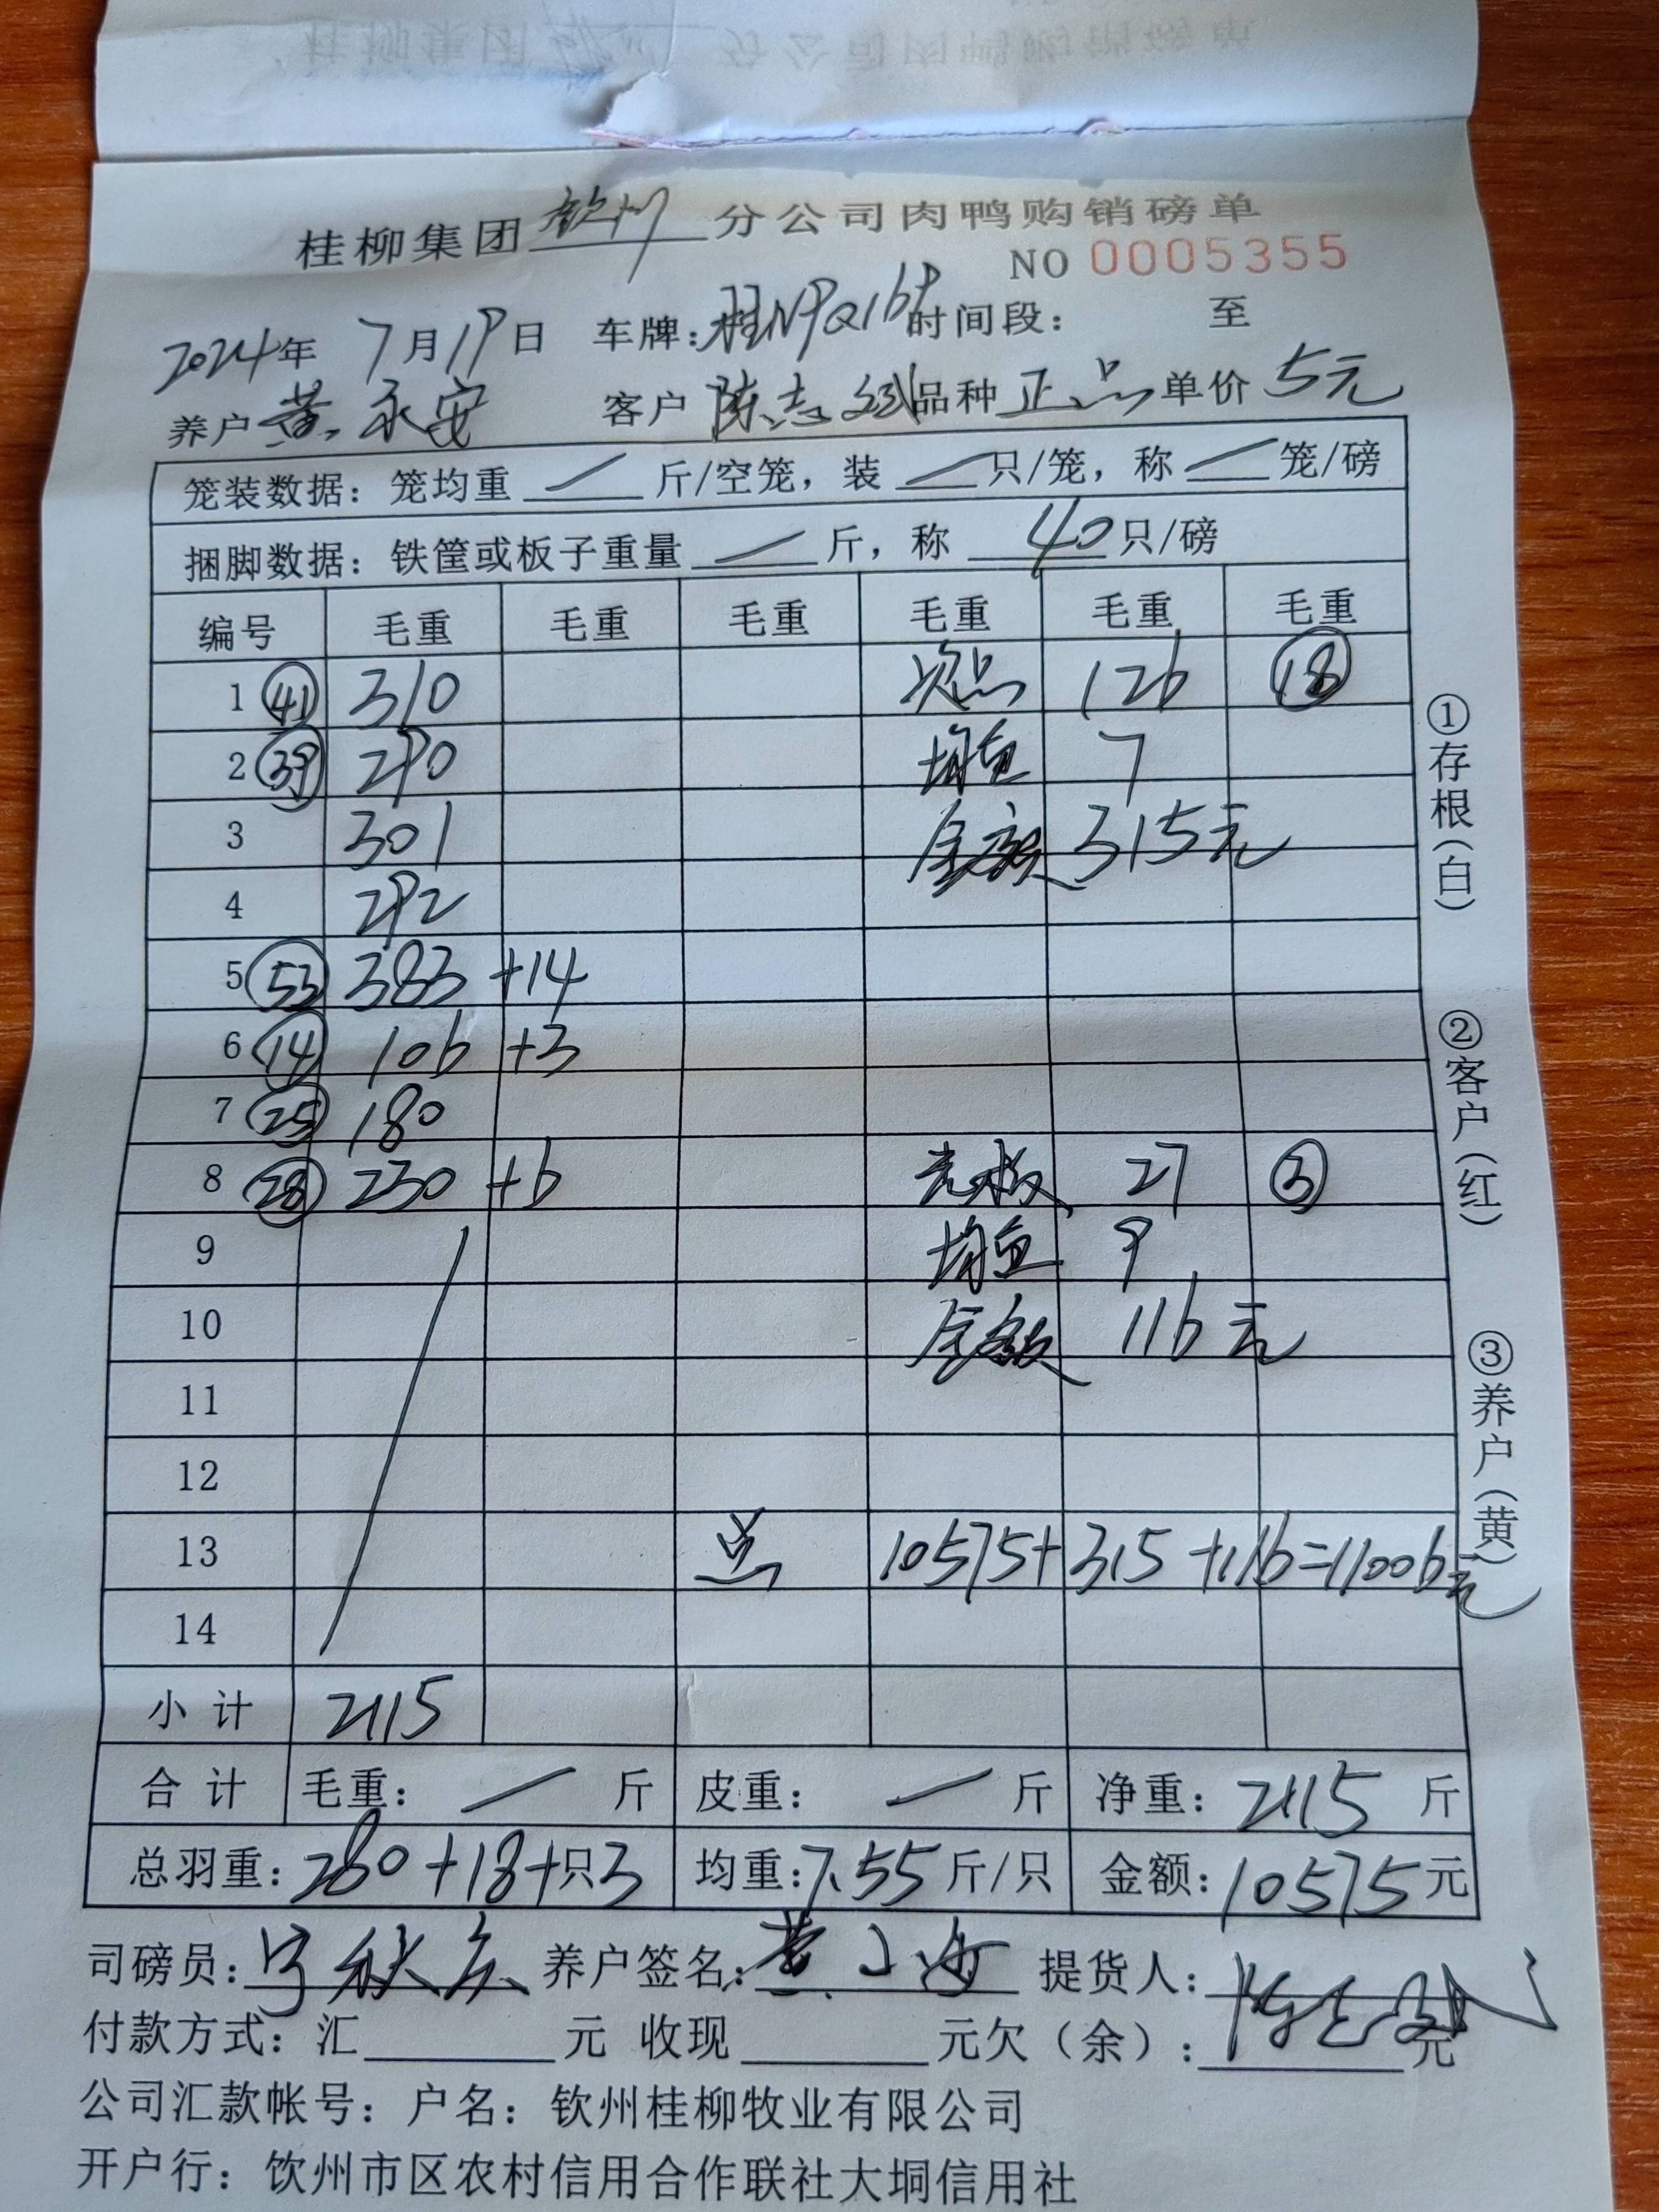 桂柳集团钦州分公司肉鸭购销磅单
NO 0005355
2024年 7月19日 车牌:桂NPQ168 时间段: 至
养户 黄永安 客户 陈志斌 品种 正品 单价 5元
笼装数据: 笼均重 — 斤/空笼, 装 — 只/笼, 称 — 笼/磅
捆脚数据: 铁筐或板子重量 — 斤, 称 40 只/磅
编号 毛重 毛重 毛重 毛重 毛重 毛重
1 41 310 次品 126 18
2 39 290 均重 7
3 301 金额 315元
4 292
5 53 383 +14
6 14 106 +3
7 25 180
8 28 230 +6 光板 27 3
9 均重 9
10 金额 116元
11
12
13 总 10575+315+116=11006元
14
小计 2115
合计 毛重: — 斤 皮重: — 斤 净重: 2115 斤
总羽重: 280+18+只3 均重: 7.55 斤/只 金额: 10575元
司磅员: 养户签名: 提货人:
付款方式: 汇 元 收现 元欠(余): 元
公司汇款帐号: 户名: 钦州桂柳牧业有限公司
开户行: 饮州市区农村信用合作联社大垌信用社
①存根(白)
②客户(红)
③养户(黄)